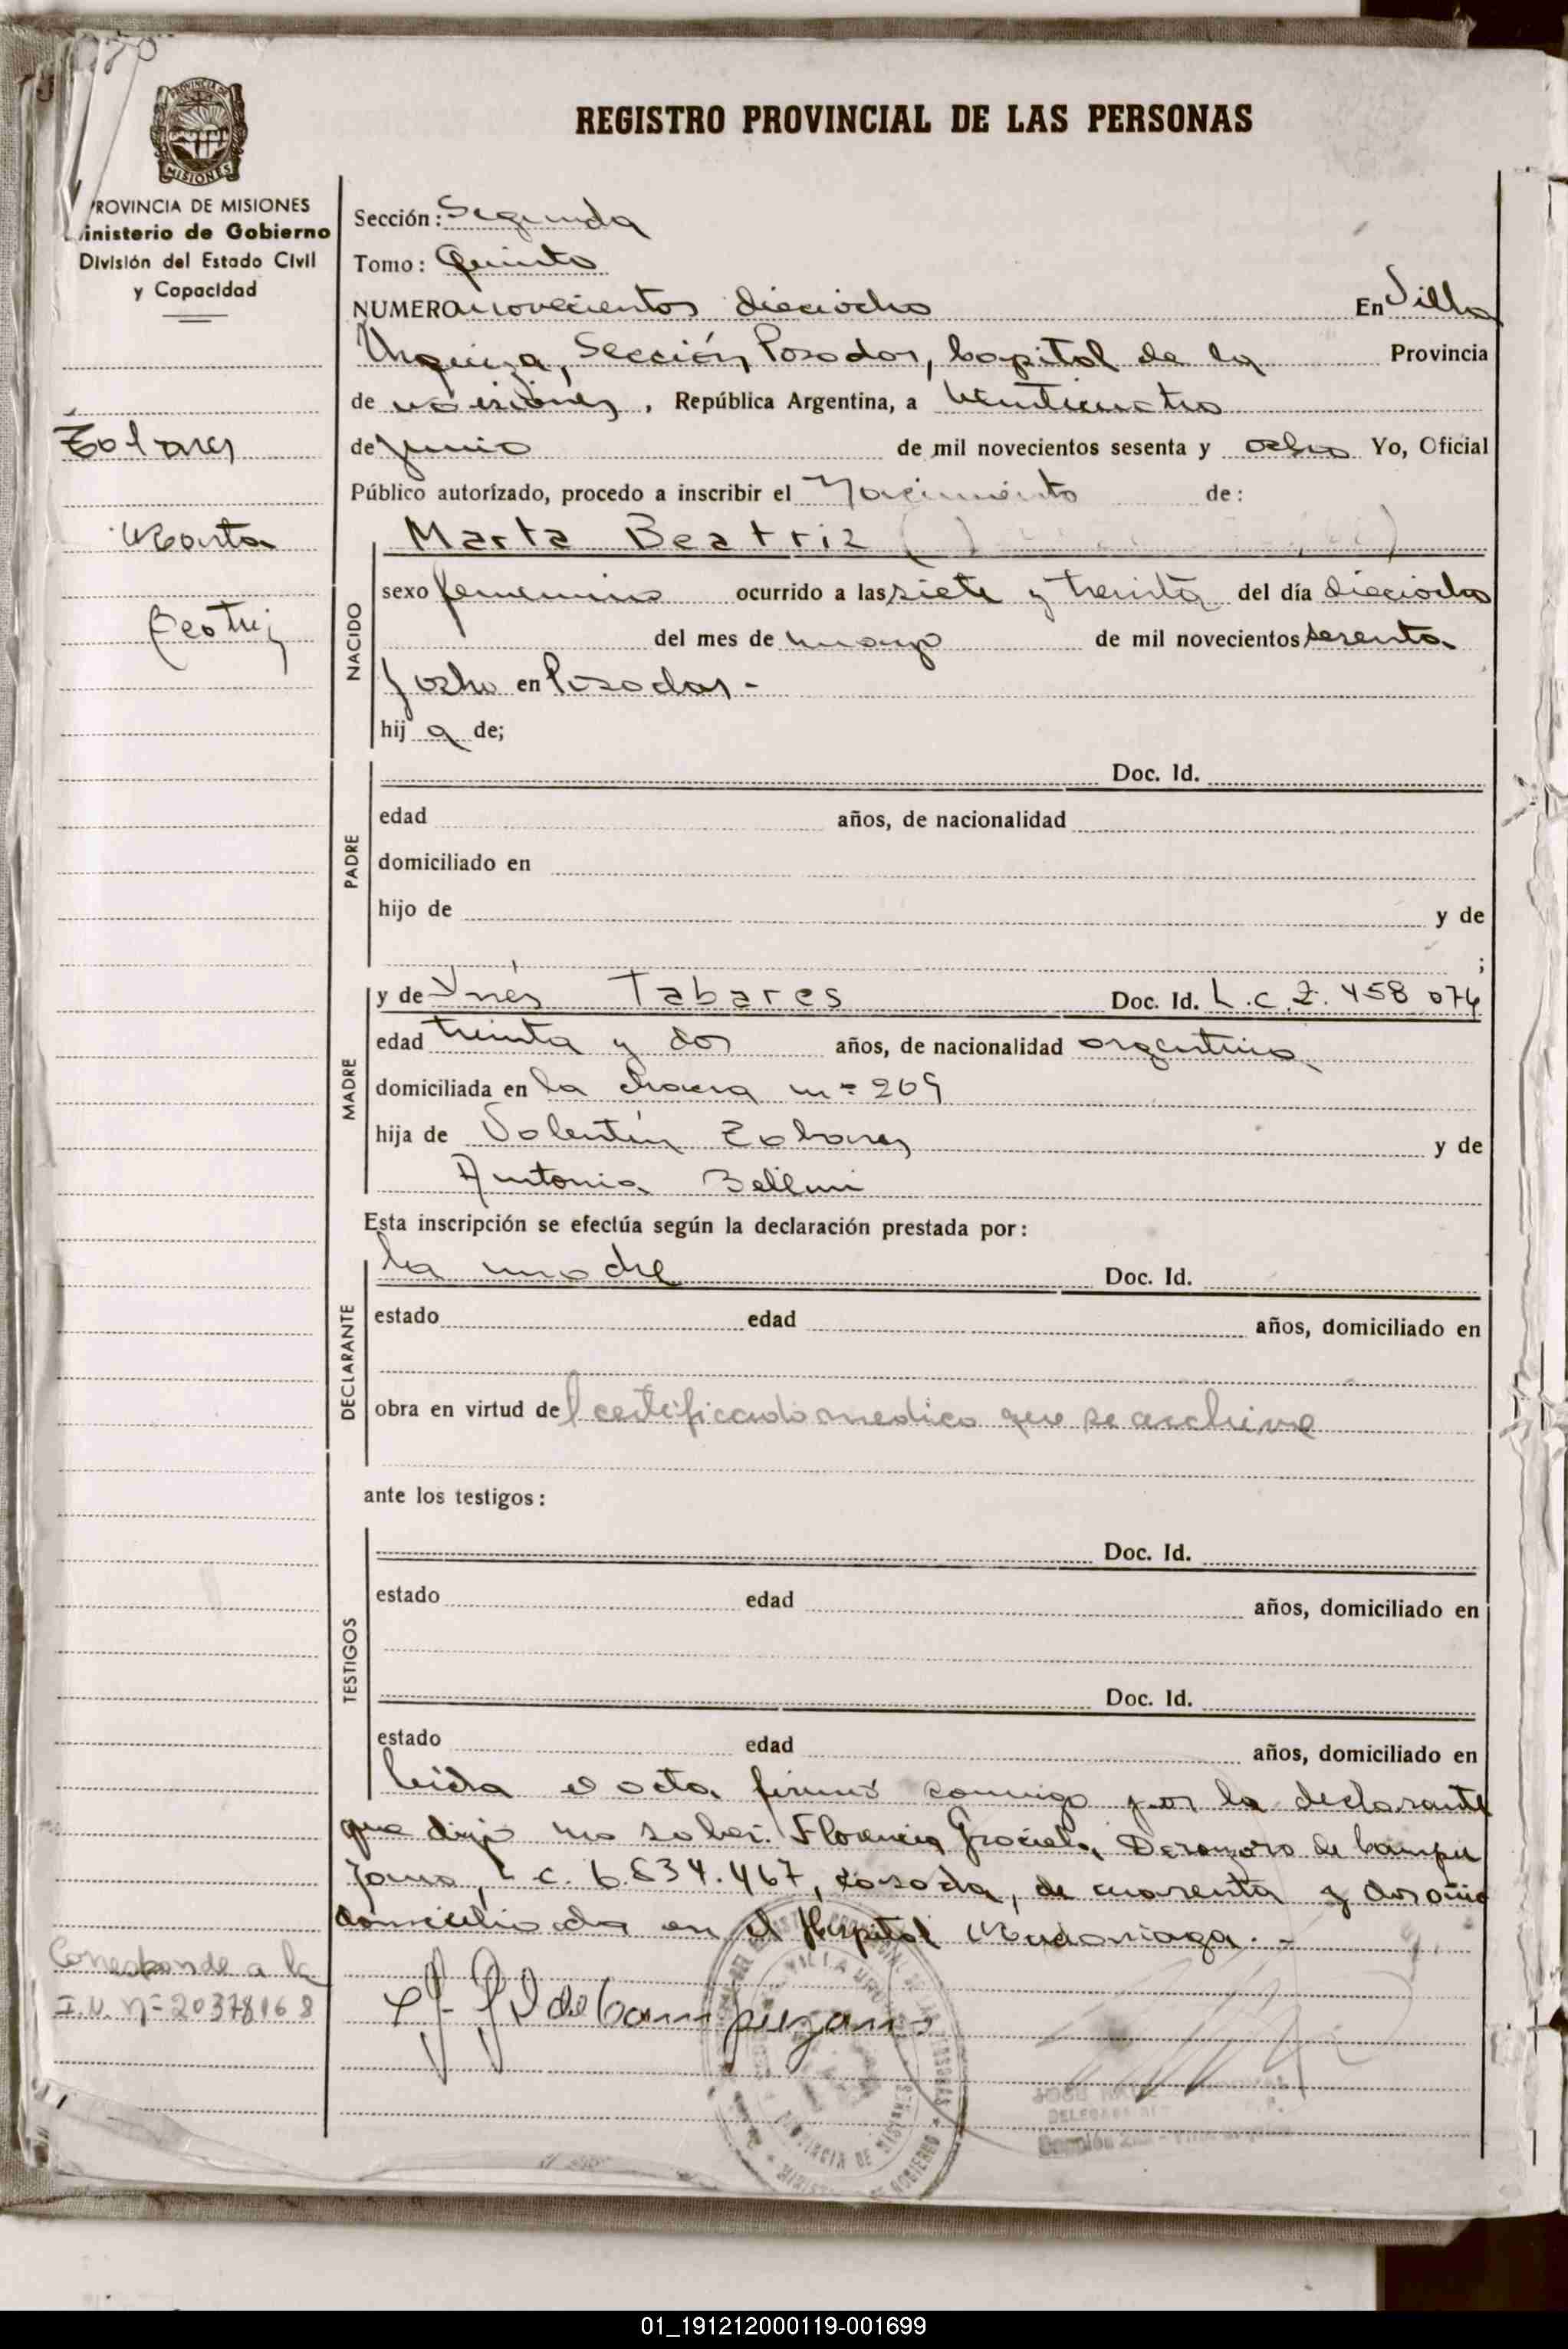 REGISTRO PROVINCIAL DE LAS PERSONAS
PROVINCIA DE
MISIONES
PROVINCIA DE MISIONES
inisterio de Gobierno
División del Estado Civil
y Capacidad
Sección: Segunda
Tomo: Quinto
NUMERO novecientos dieciocho En Villa
Urquiza, Sección Posadas, Capital de la Provincia
de Misiones, República Argentina, a veinticuatro
de junio de mil novecientos sesenta y ocho Yo, Oficial
Público autorizado, procedo a inscribir el Nacimiento de:
Marta Beatriz ( )
NACIDO
sexo femenino ocurrido a las siete y treinta del día dieciocho
del mes de marzo de mil novecientos sesenta
y ocho en Posadas -
hij a de;
Marta
Beatriz
PADRE
Doc. Id.
edad años, de nacionalidad
domiciliado en
hijo de y de
;
MADRE
y de Ynés Tabares Doc. Id. L.C. 2.458 074
edad treinta y dos años, de nacionalidad argentina
domiciliada en la chacra nº 209
hija de Valentín y de
Antonia
Esta inscripción se efectúa según la declaración prestada por:
DECLARANTE
la madre Doc. Id.
estado edad años, domiciliado en
obra en virtud del certificado medico que se archiva
ante los testigos:
TESTIGOS
Doc. Id.
estado edad años, domiciliado en
Doc. Id.
estado edad años, domiciliado en
leida el acta, firmó conmigo por la declarante
que dijo no saber: Florencia Graciela de Campu
zano, L.C. 6.634.467, casada, de cuarenta y dos años
domiciliada en el Hospital Madariaga. -
Corresponde a la
I.N. Nº 20378168
de Campuzano
VILLA URQUIZA
PROVINCIA DE MISIONES
01_191212000119-001699